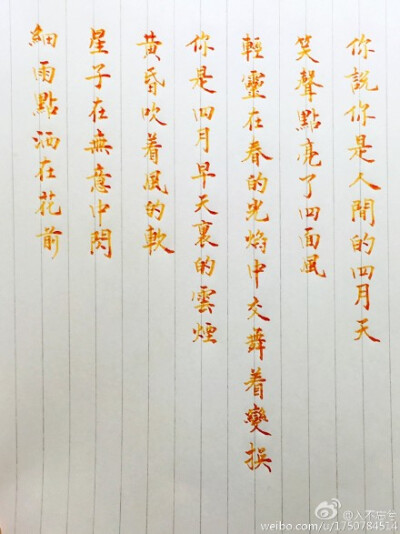 你説你是人間的四月天
笑聲點亮了四面風
輕靈在春的光焰中交舞着變
你是四月早天裏的雲煙
黄昏吹着風的軟
星子在無意中閃
細雨點洒在花前
weibo.com/u/1750784514